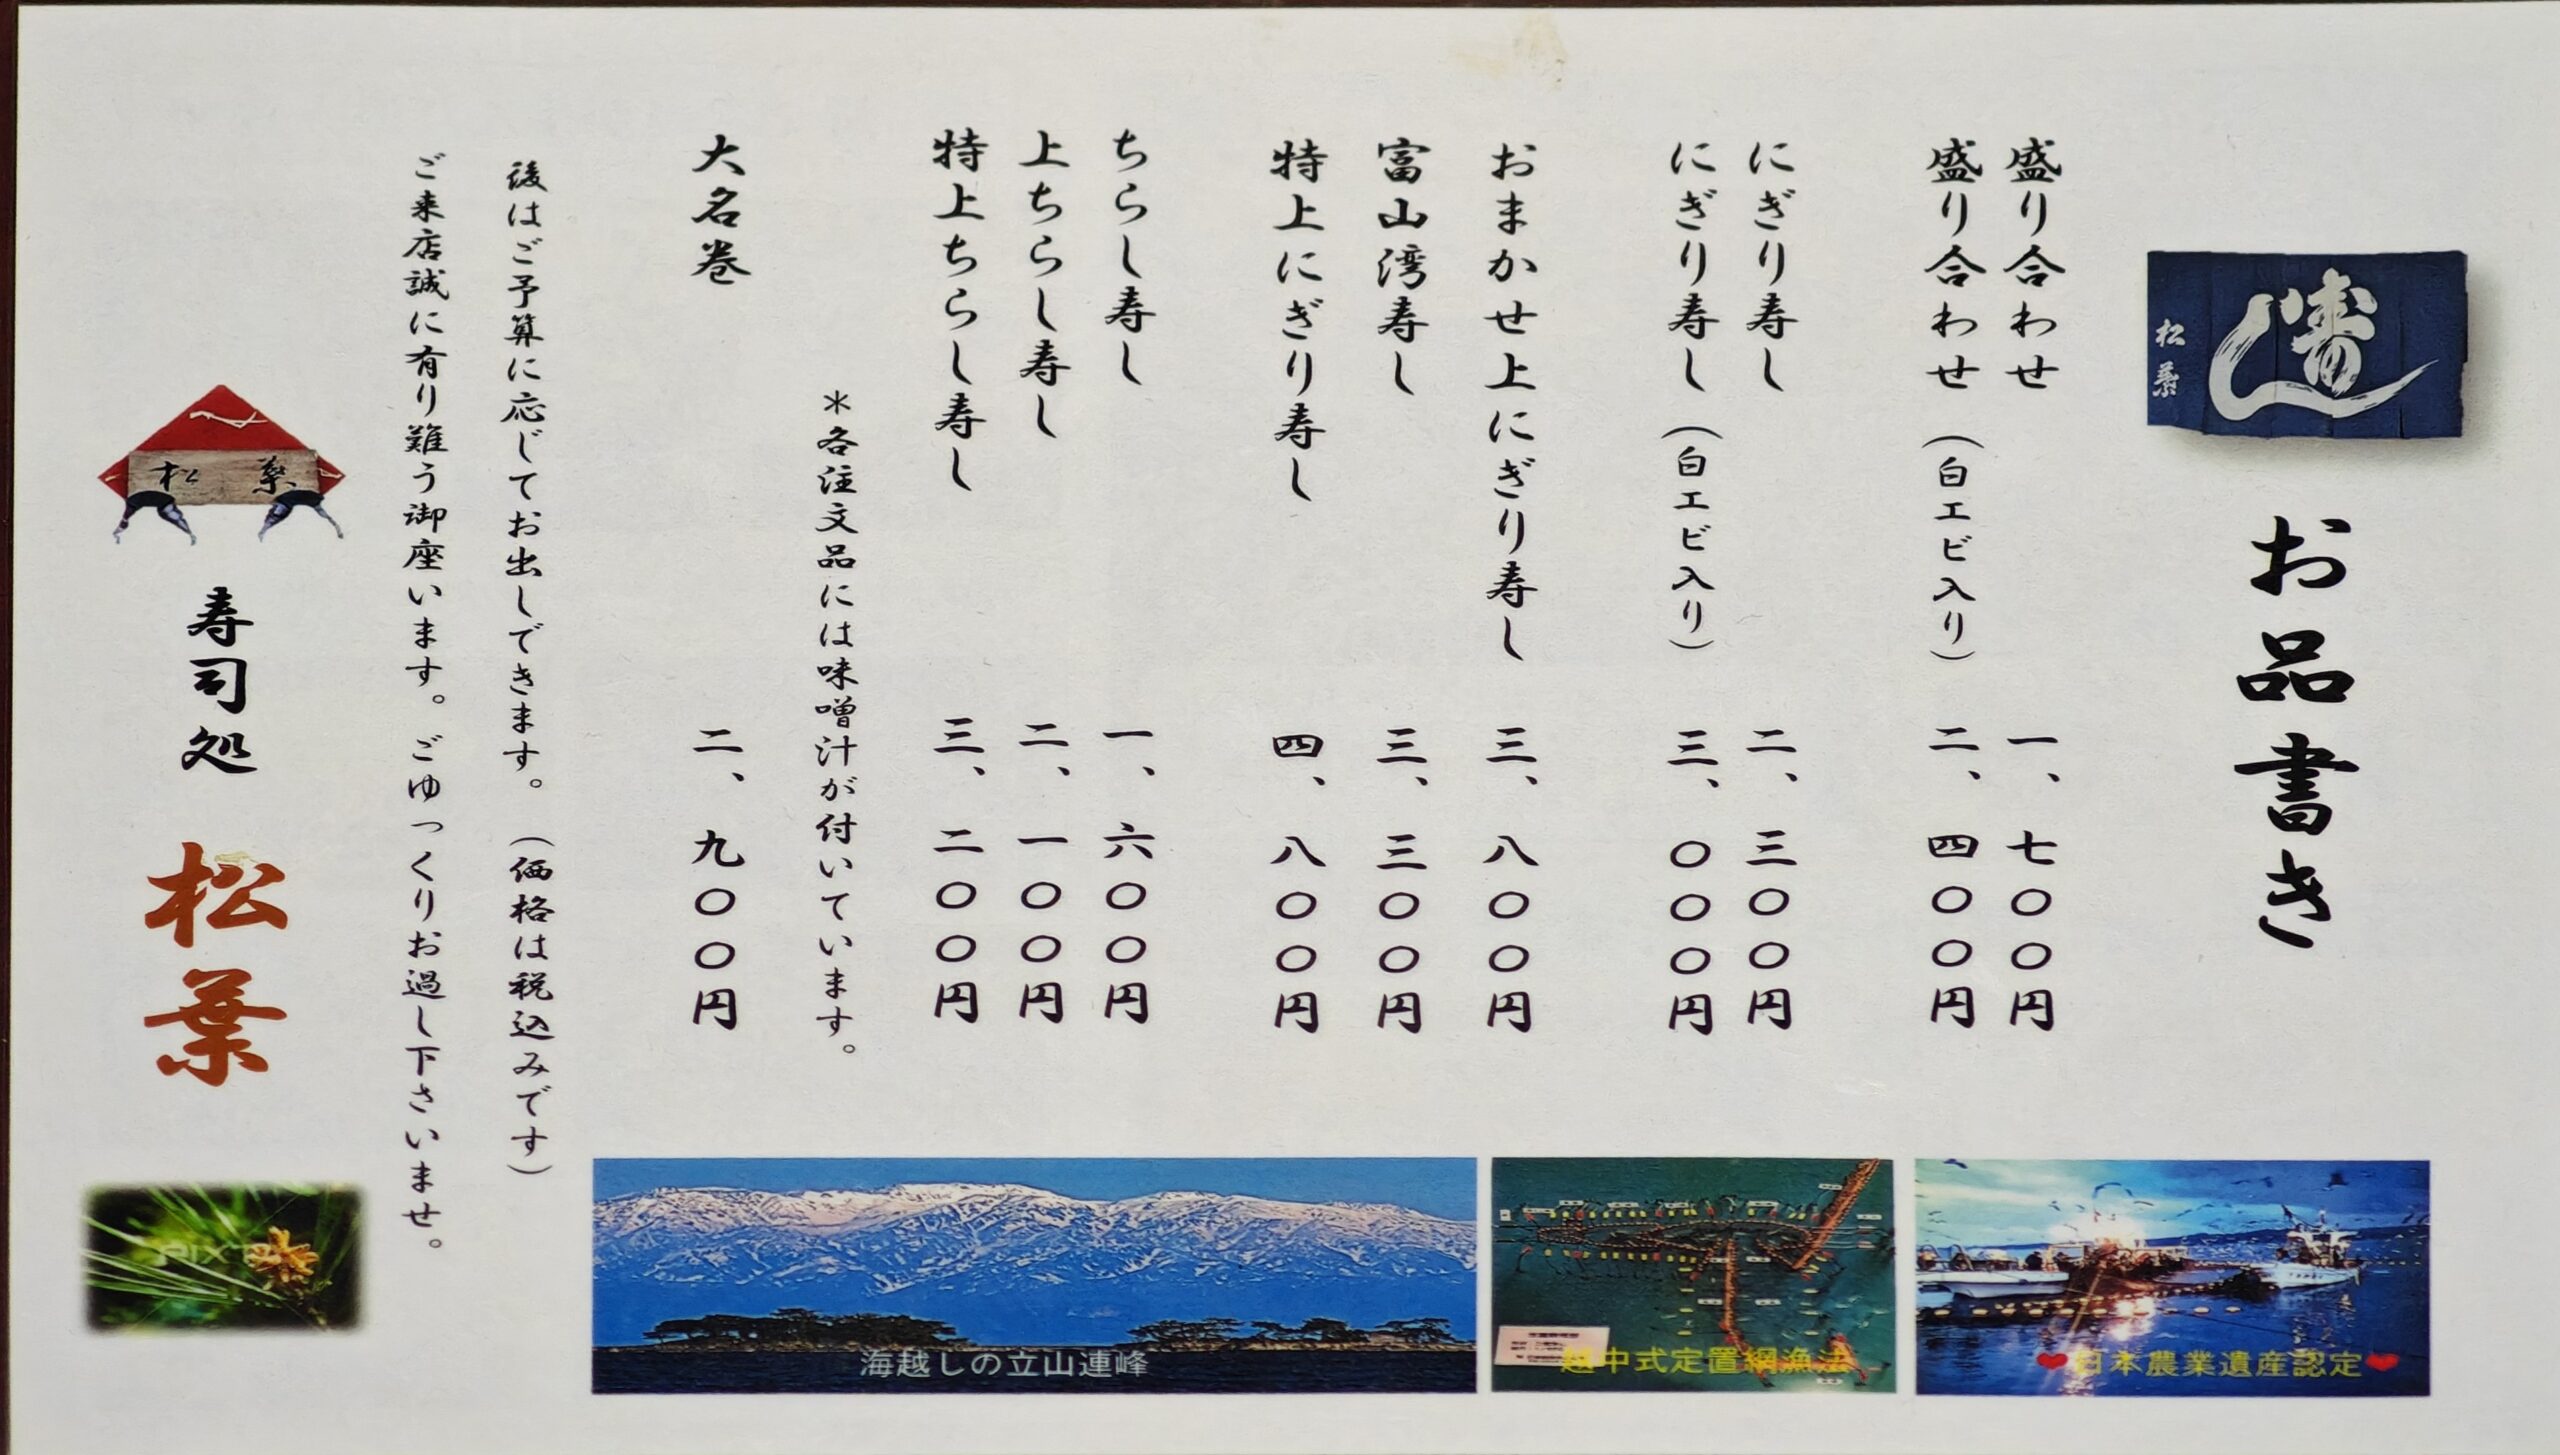 寿し
松葉
お品書き
盛り合わせ 一、七〇〇円
盛り合わせ（白エビ入り） 二、四〇〇円
にぎり寿し 二、三〇〇円
にぎり寿し（白エビ入り） 三、〇〇〇円
おまかせ上にぎり寿し 三、八〇〇円
富山湾寿し 三、三〇〇円
特上にぎり寿し 四、八〇〇円
ちらし寿し 一、六〇〇円
上ちらし寿し 二、一〇〇円
特上ちらし寿し 三、二〇〇円
＊各注文品には味噌汁が付いています。
大名巻 二、九〇〇円
後はご予算に応じてお出しできます。（価格は税込みです）
ご来店誠に有り難う御座います。ごゆっくりお過し下さいませ。
松葉
寿司処 松葉
❤日本農業遺産認定❤
越中式定置網漁法
海越しの立山連峰